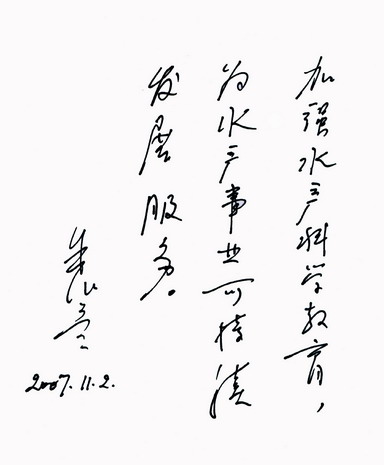 加强水产科学教育，
为水产事业可持续
发展服务。
朱作言
2007.11.2.